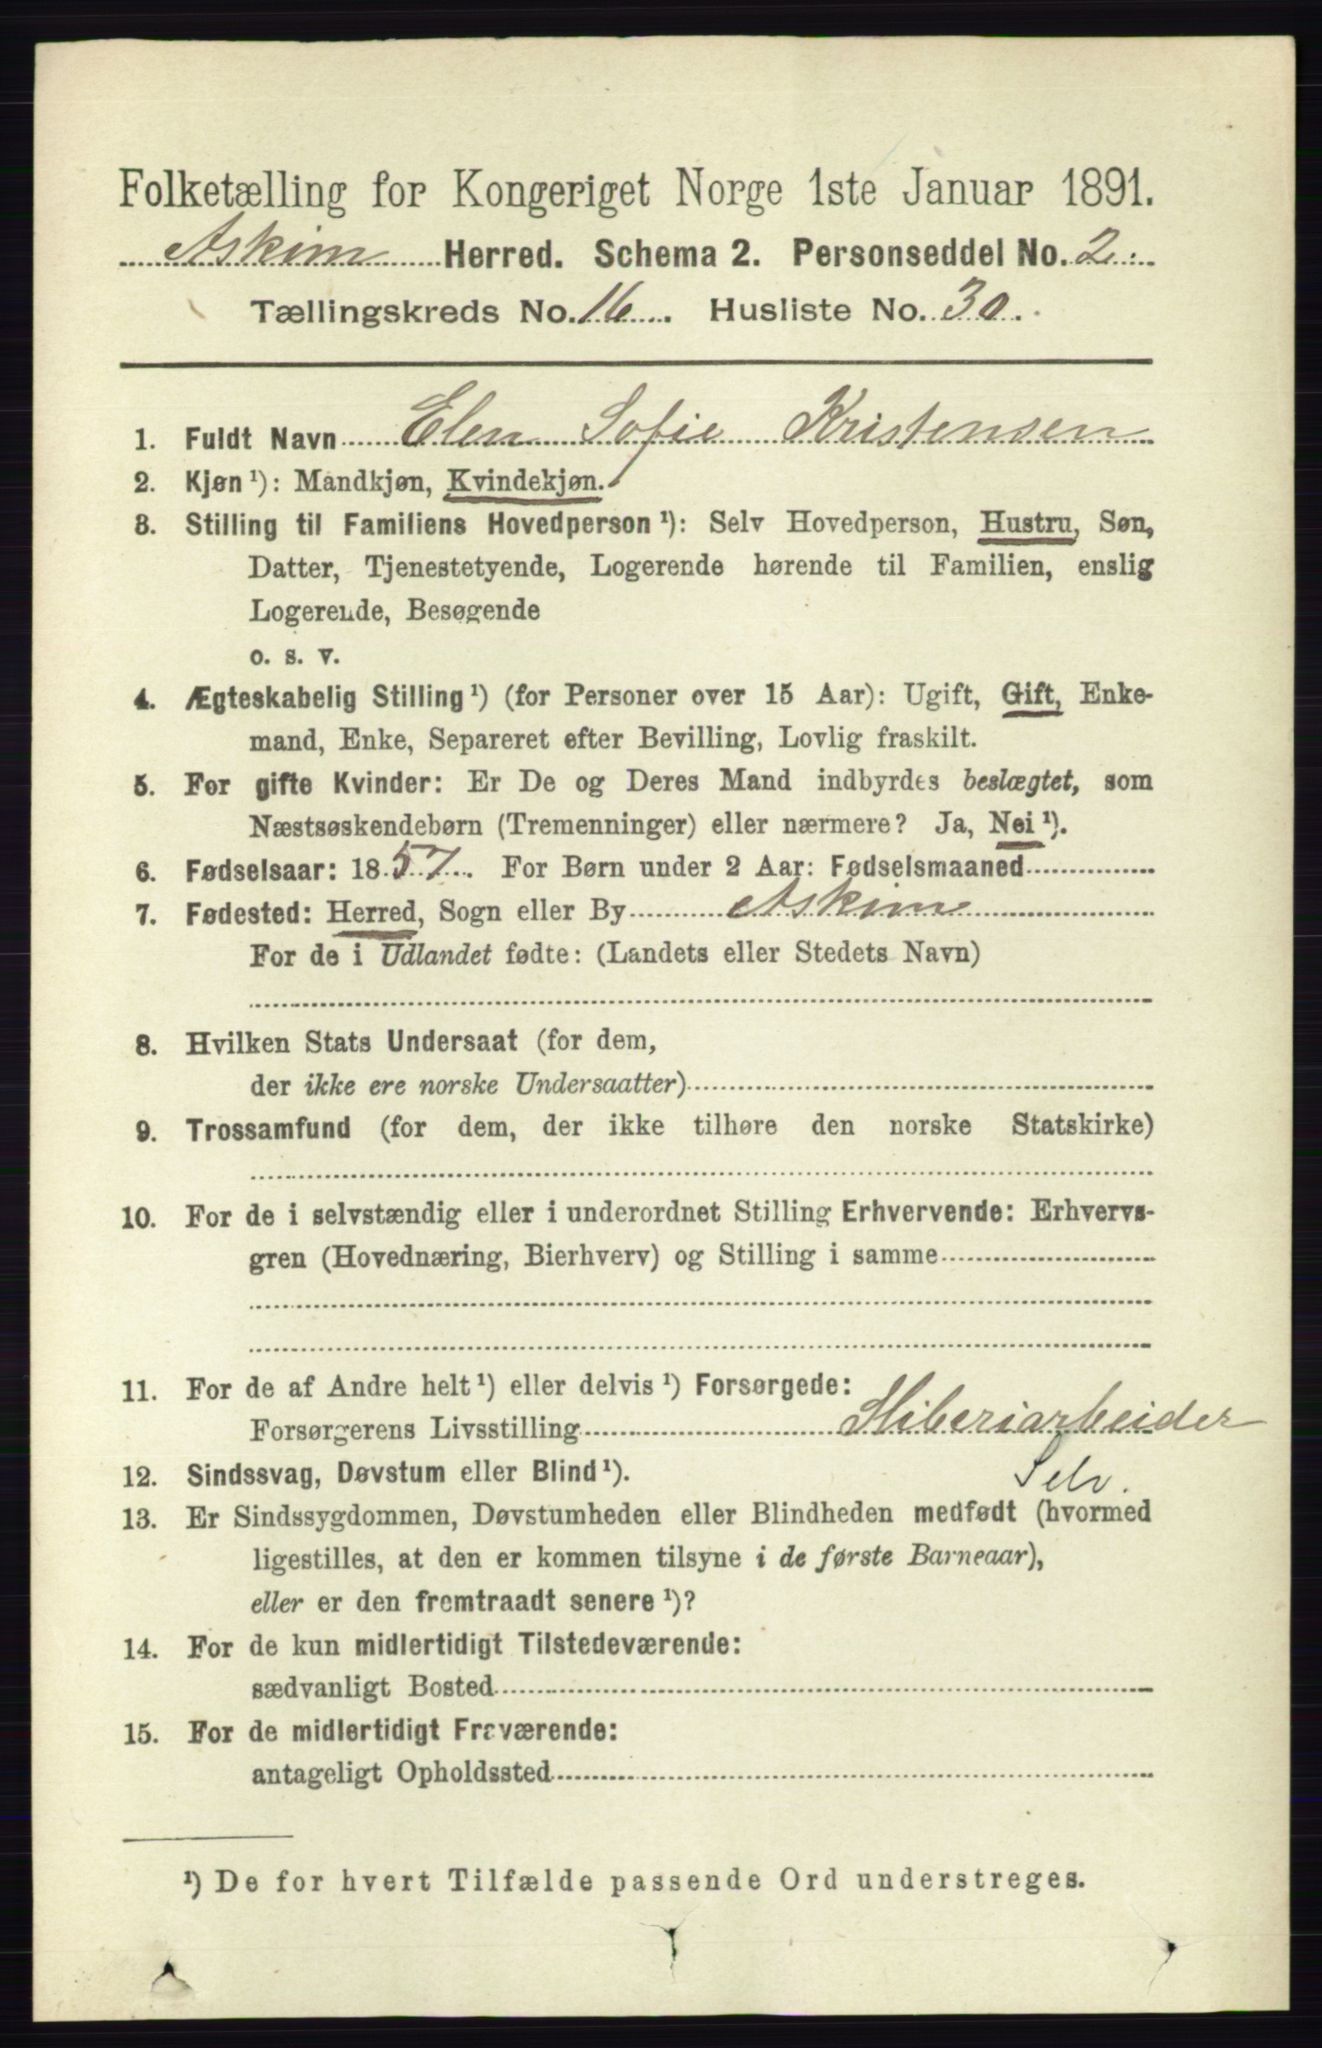 Folketælling for Kongeriget Norge 1ste Januar 1891.
Askim Herred. Schema 2. Personseddel No. 2.
Tællingskreds No. 16. Husliste No. 30.
1. Fuldt Navn Elen Sofie Kristensen
2. Kjøn ¹): Mandkjøn, Kvindekjøn.
3. Stilling til Familiens Hovedperson ¹): Selv Hovedperson, Hustru, Søn,
Datter, Tjenestetyende, Logerende hørende til Familien, enslig
Logerende, Besøgende
o. s. v.
4. Ægteskabelig Stilling ¹) (for Personer over 15 Aar): Ugift, Gift, Enke-
mand, Enke, Separeret efter Bevilling, Lovlig fraskilt.
5. For gifte Kvinder: Er De og Deres Mand indbyrdes beslægtet, som
Næstsøskendebørn (Tremenninger) eller nærmere? Ja, Nei ¹).
6. Fødselsaar: 1857. For Børn under 2 Aar: Fødselsmaaned
7. Fødested: Herred, Sogn eller By Askim
For de i Udlandet fødte: (Landets eller Stedets Navn)
8. Hvilken Stats Undersaat (for dem,
der ikke ere norske Undersaatter)
9. Trossamfund (for dem, der ikke tilhøre den norske Statskirke)
10. For de i selvstændig eller i underordnet Stilling Erhvervende: Erhvervs-
gren (Hovednæring, Bierhverv) og Stilling i samme
11. For de af Andre helt ¹) eller delvis ¹) Forsørgede:
Forsørgerens Livsstilling Sliberiarbeider
12. Sindssvag, Døvstum eller Blind ¹). Selv.
13. Er Sindssygdommen, Døvstumheden eller Blindheden medfødt (hvormed
ligestilles, at den er kommen tilsyne i de første Barneaar),
eller er den fremtraadt senere ¹)?
14. For de kun midlertidigt Tilstedeværende:
sædvanligt Bosted
15. For de midlertidigt Fraværende:
antageligt Opholdssted
¹) De for hvert Tilfælde passende Ord understreges.